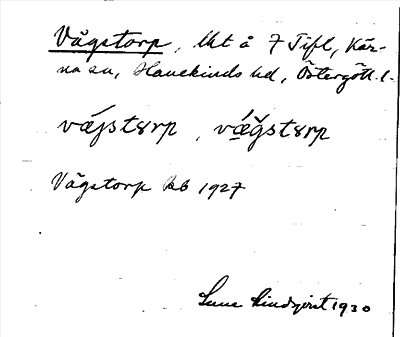 Vågstorp, lht å 7 Tifl, Kär-
na sn, Hanekinds hd, Östergötl. l.
vǻjstɤrp , vǻğstɤrp
Vågstorp Jb 1927
Sune Lindqvist 1930